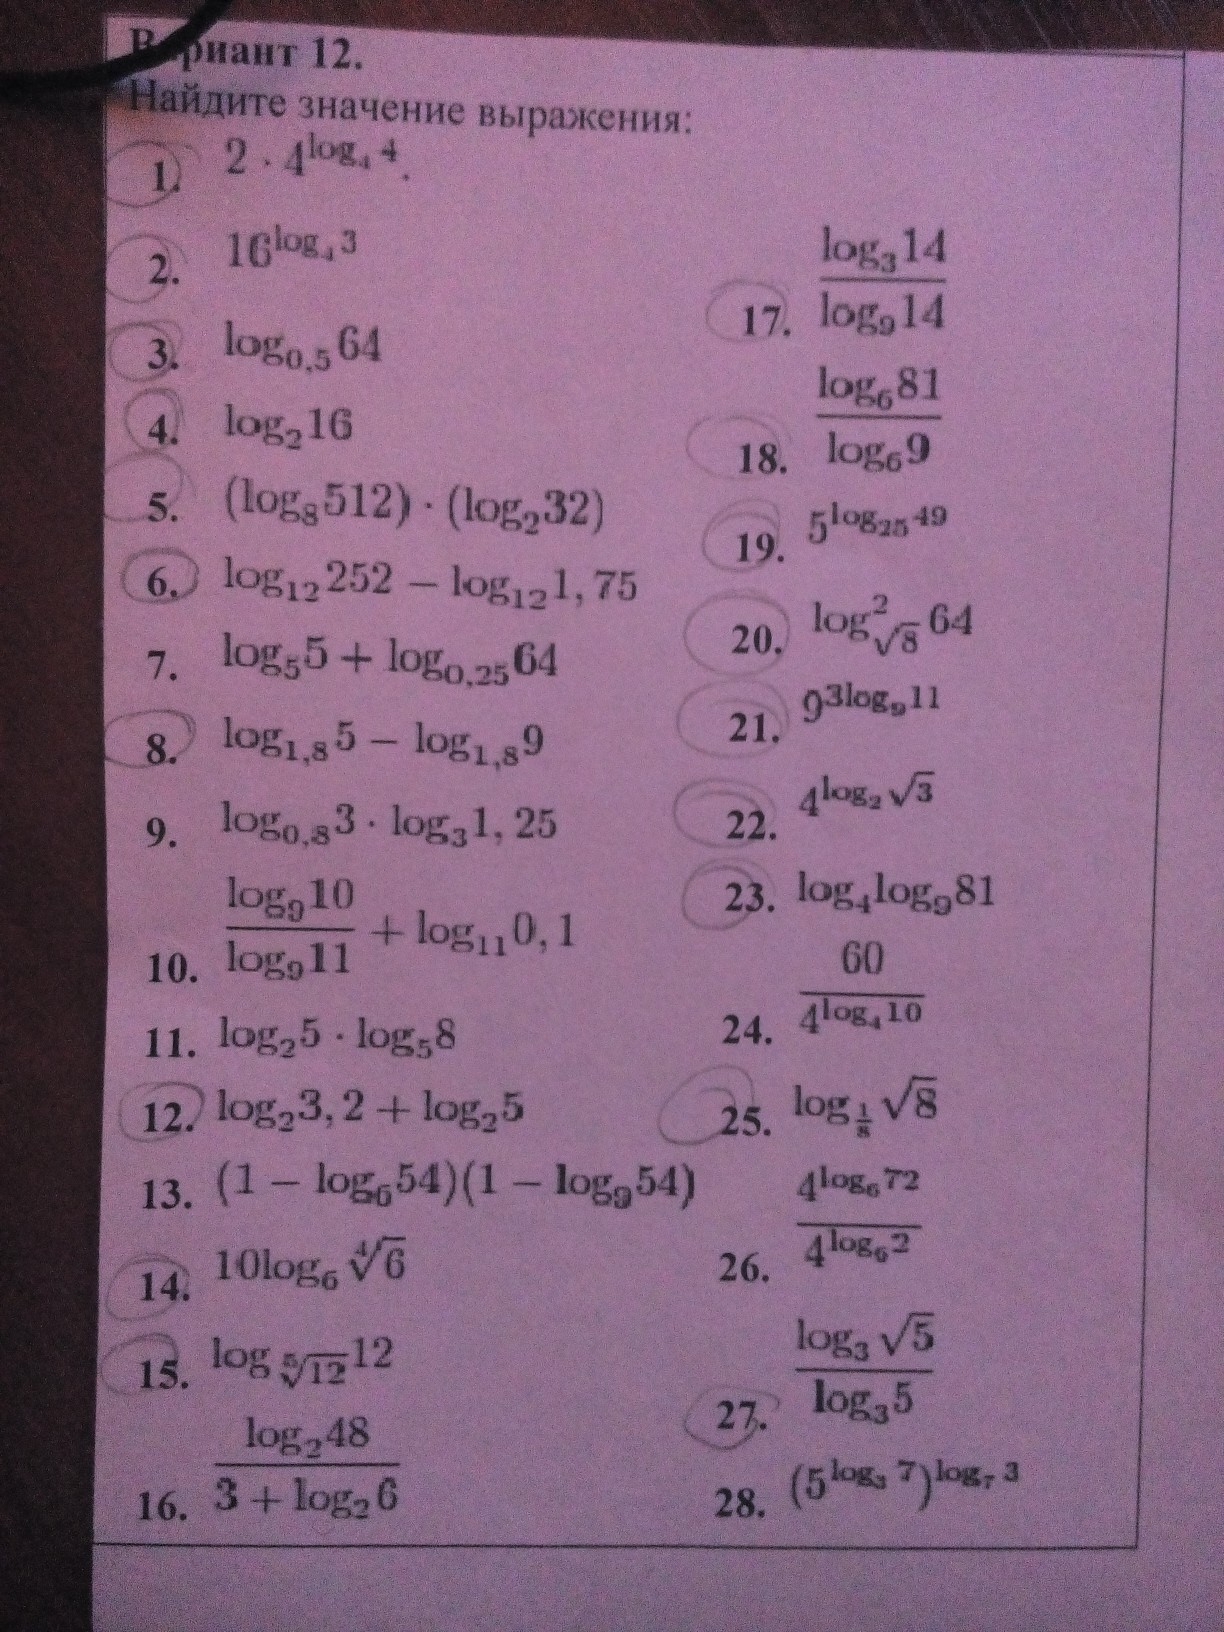 Вариант 12.
Найдите значение выражения:
1. 2 · 4^{log_4 4}.
2. 16^{log_4 3}
3. log_{0,5} 64
4. log_2 16
5. (log_8 512) · (log_2 32)
6. log_{12} 252 − log_{12} 1, 75
7. log_5 5 + log_{0,25} 64
8. log_{1,8} 5 − log_{1,8} 9
9. log_{0,8} 3 · log_3 1, 25
10. \frac{log_9 10}{log_9 11} + log_{11} 0, 1
11. log_2 5 · log_5 8
12. log_2 3, 2 + log_2 5
13. (1 − log_6 54)(1 − log_9 54)
14. 10log_6 \sqrt[4]{6}
15. log_{\sqrt[5]{12}} 12
16. \frac{log_2 48}{3 + log_2 6}
17. \frac{log_3 14}{log_9 14}
18. \frac{log_6 81}{log_6 9}
19. 5^{log_{25} 49}
20. log^2_{\sqrt{8}} 64
21. 9^{3log_9 11}
22. 4^{log_2 \sqrt{3}}
23. log_4 log_9 81
24. \frac{60}{4^{log_4 10}}
25. log_{\frac{1}{8}} \sqrt{8}
26. \frac{4^{log_6 72}}{4^{log_6 2}}
27. \frac{log_3 \sqrt{5}}{log_3 5}
28. (5^{log_3 7})^{log_7 3}